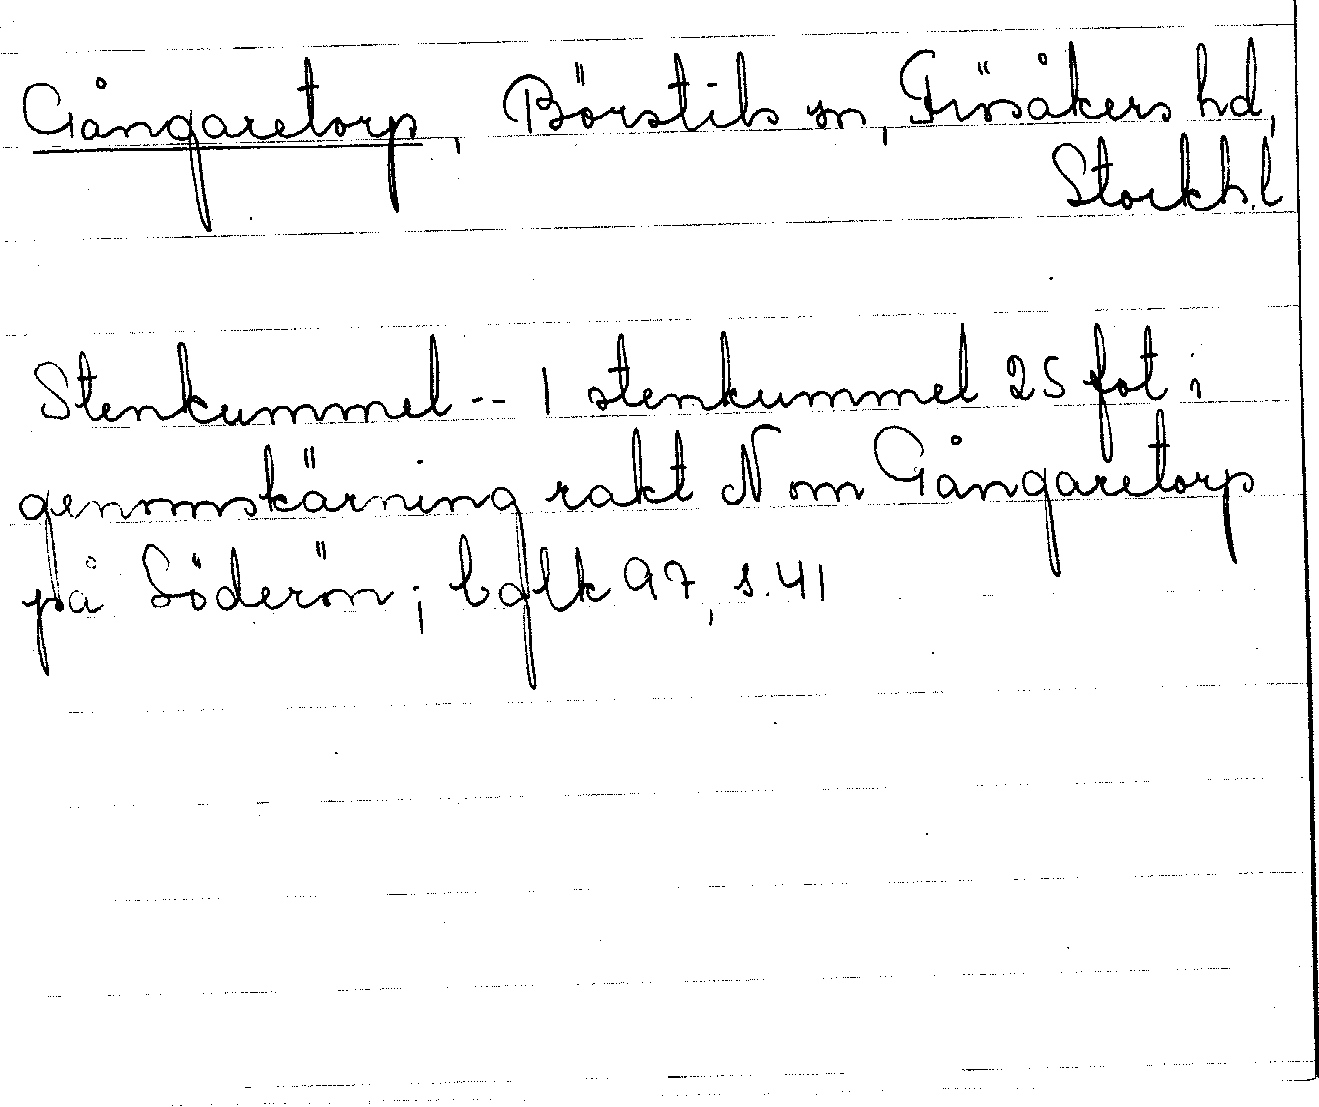 Gångaretorp, Börstils sn, Frösåkers hd,
Stockh.l
Stenkummel -- 1 stenkummel 25 fot i
genomskärning rakt N om Gångaretorp
på Söderön; balk 97, s. 41